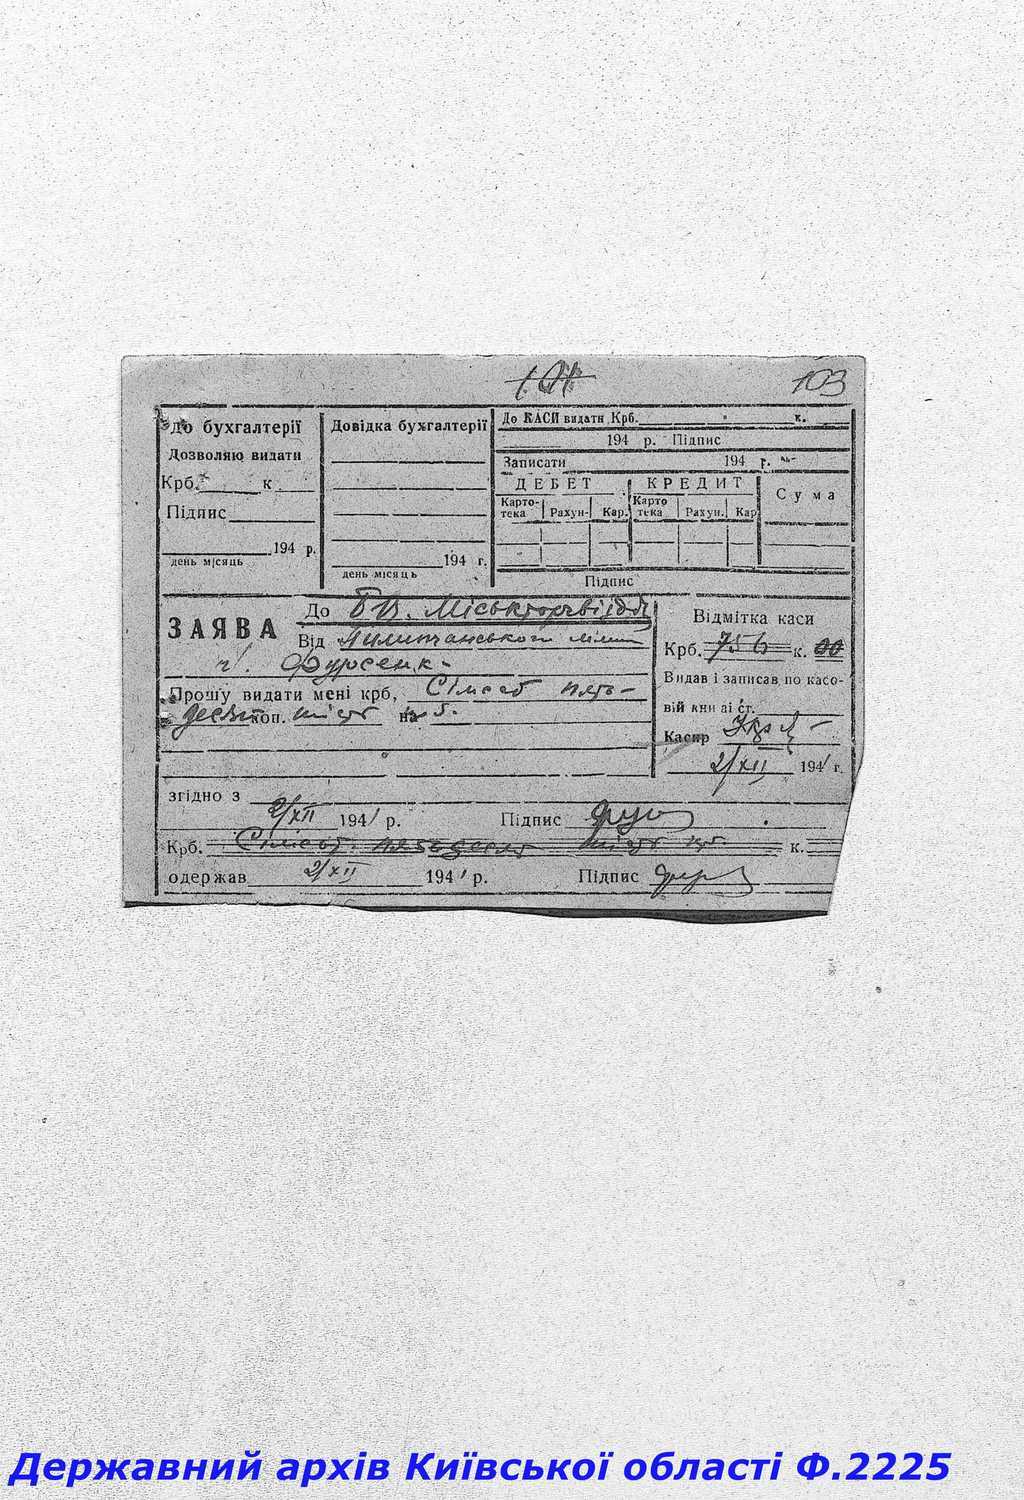 103
До бухгалтерії
Дозволяю видати
Крб. к
Підпис
194 р.
день місяць
Довідка бухгалтерії
194 г.
день місяць
До КАСИ видати Крб. к.
194 р. Підпис
Записати 194 г.
ДЕБЕТ КРЕДИТ Сума
Картотека Рахун- Кар. Картотека Рахун. Кар
Підпис
ЗАЯВА
До Б.В. Міськторгвідділ
Від
Фурсенк-
Прошу видати мені крб, Сімсот пять-
десят коп. шість на
Відмітка каси
Крб. 756 к. 00
Видав і записав по касо-
вій кни зі ст.
Касир
2/XII 1941 г.
згідно з
2/XII 1941 р. Підпис
Крб. Сімсот пятьдесят шість крб. к.
одержав 2/XII 1941 р. Підпис
Державний архів Київської області Ф.2225